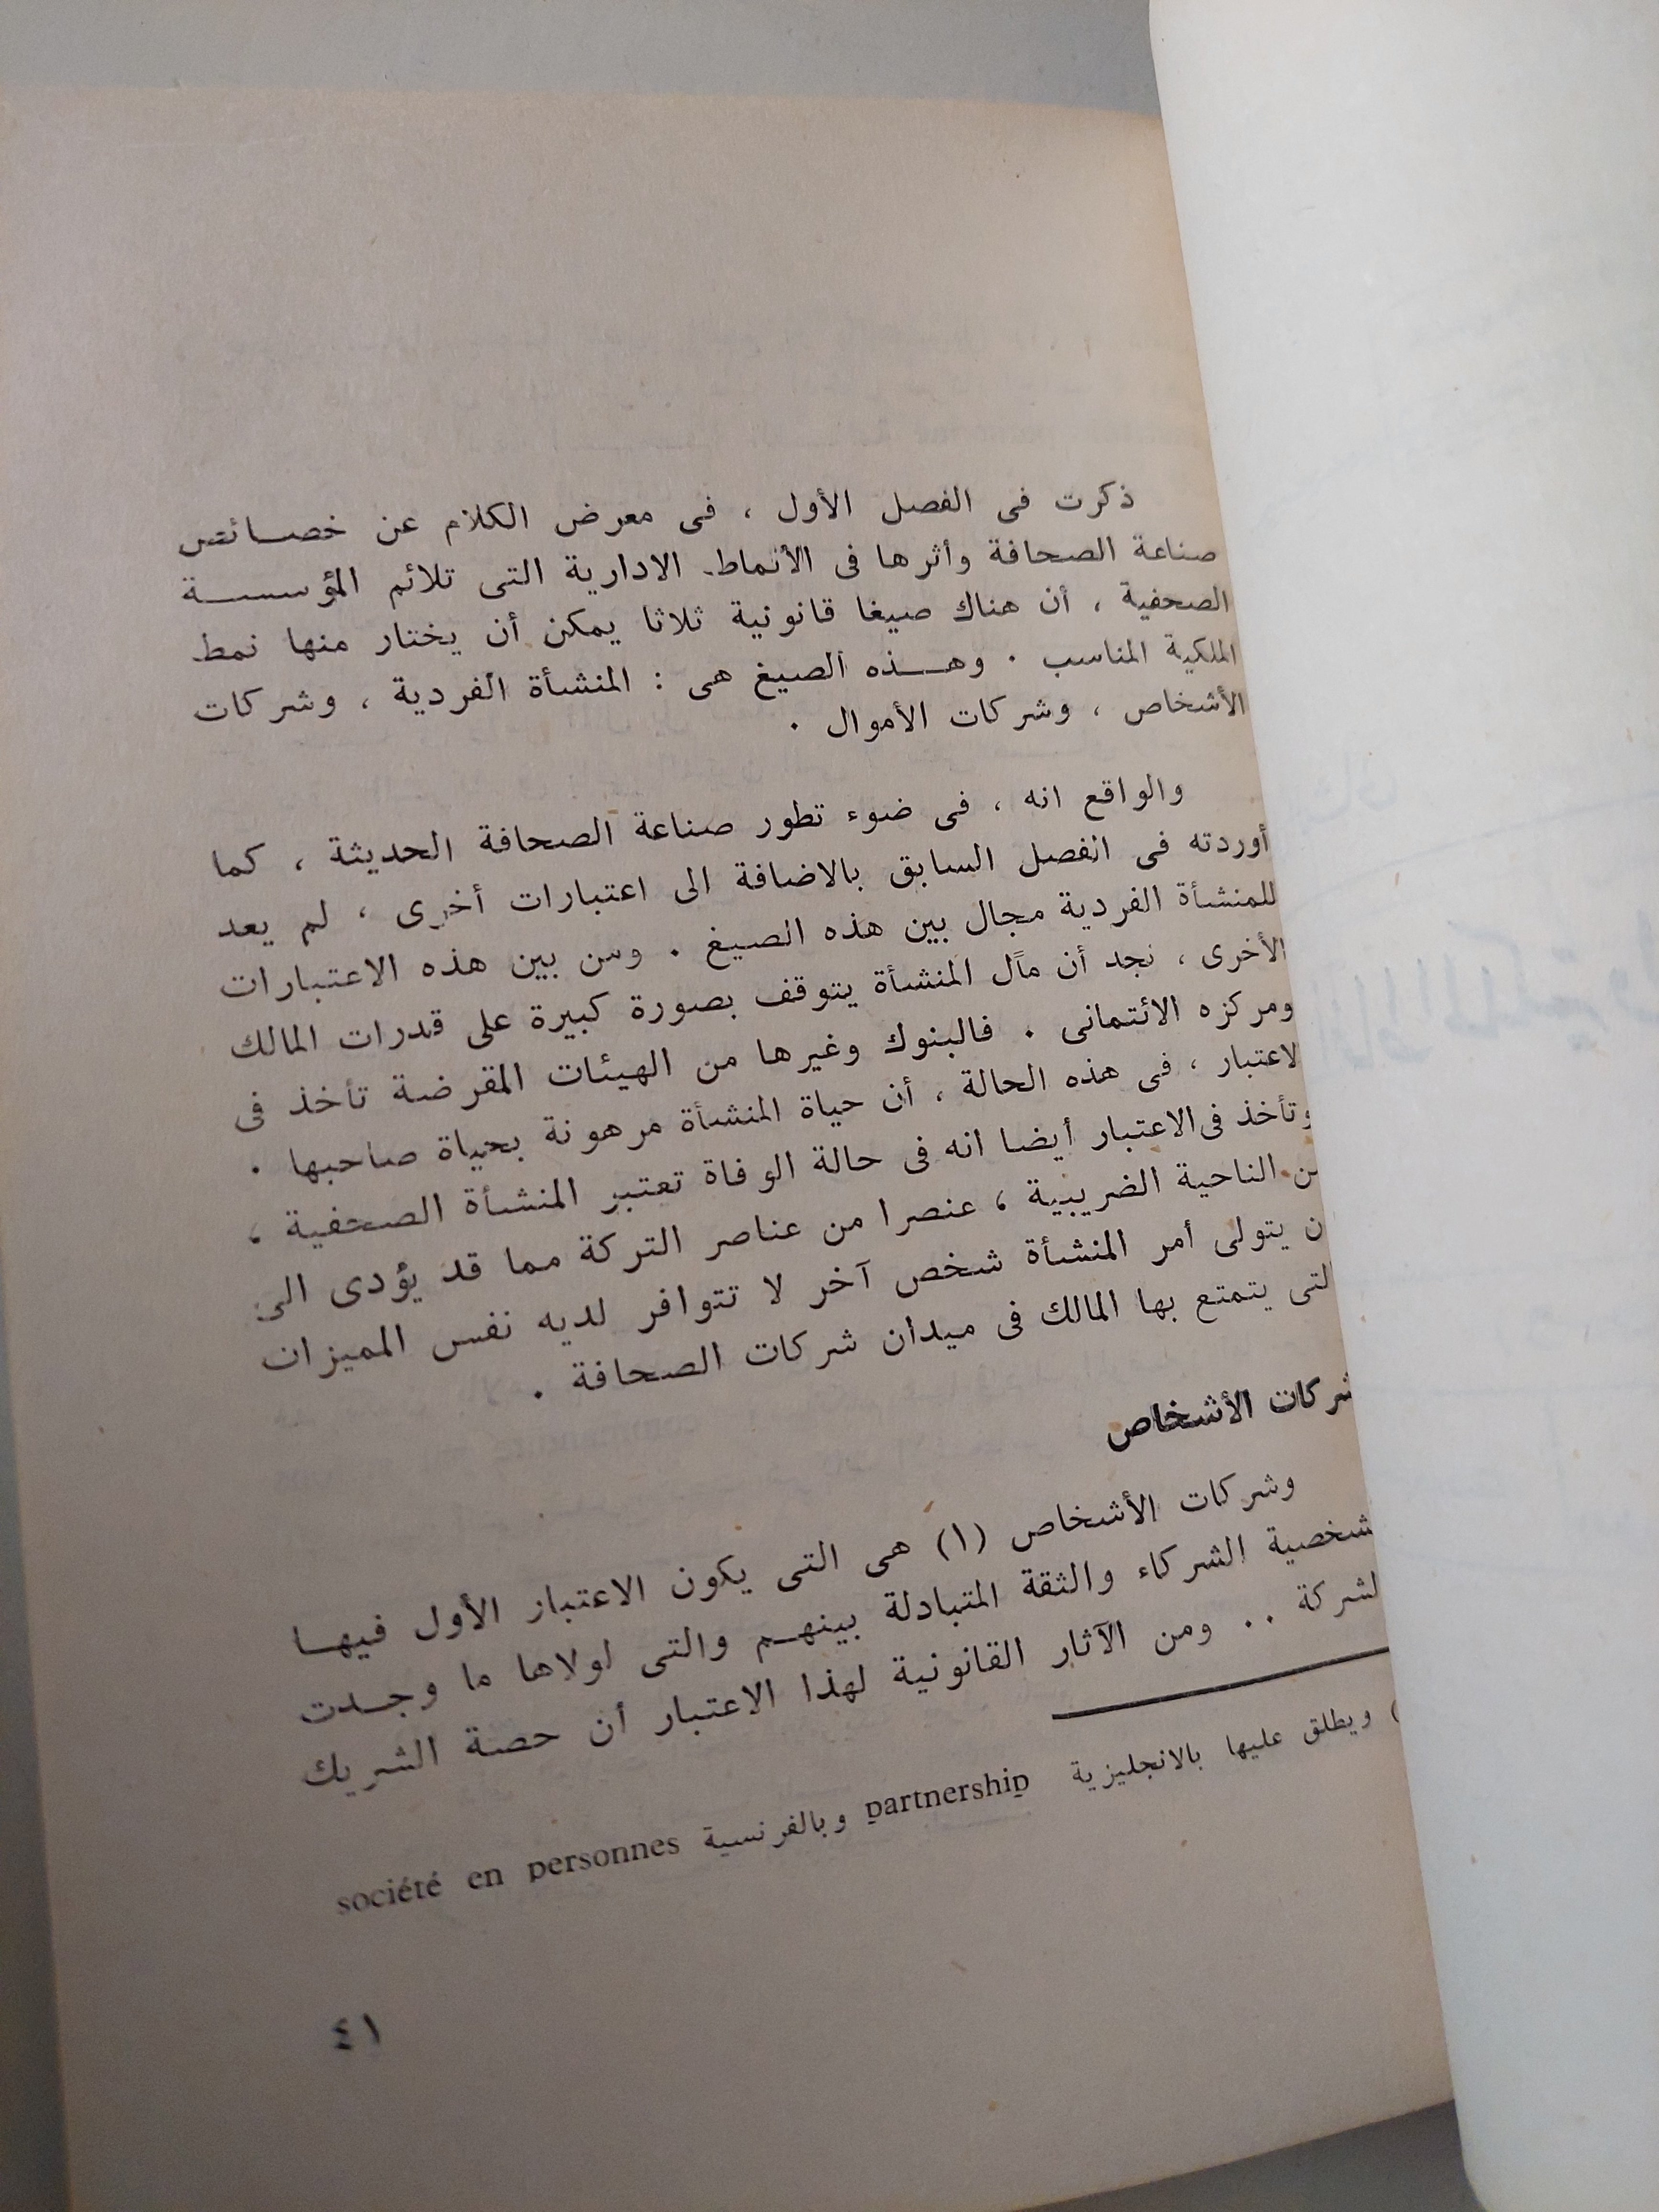 ذكرت فى الفصل الأول ، فى معرض الكلام عن خصائص
صناعة الصحافة وأثرها فى الأنماط الادارية التى تلائم المؤسسة
الصحفية ، أن هناك صيغا قانونية ثلاثا يمكن أن يختار منها نمط
الملكية المناسب . وهذه الصيغ هى : المنشأة الفردية ، وشركات
الأشخاص ، وشركات الأموال .
والواقع انه ، فى ضوء تطور صناعة الصحافة الحديثة ، كما
أوردته فى الفصل السابق بالاضافة الى اعتبارات أخرى ، لم يعد
للمنشأة الفردية مجال بين هذه الصيغ . ومن بين هذه الاعتبارات
الأخرى ، نجد أن مآل المنشأة يتوقف بصورة كبيرة على قدرات المالك
ومركزه الائتمانى . فالبنوك وغيرها من الهيئات المقرضة تأخذ فى
لاعتبار ، فى هذه الحالة ، أن حياة المنشأة مرهونة بحياة صاحبها .
وتأخذ فى الاعتبار أيضا انه فى حالة الوفاة تعتبر المنشأة الصحفية ،
من الناحية الضريبية ، عنصرا من عناصر التركة مما قد يؤدى الى
ن يتولى أمر المنشأة شخص آخر لا تتوافر لديه نفس المميزات
لتى يتمتع بها المالك فى ميدان شركات الصحافة .
شركات الأشخاص
وشركات الأشخاص (١) هى التى يكون الاعتبار الأول فيها
شخصية الشركاء والثقة المتبادلة بينهم والتى لولاها ما وجدت
لشركة .. ومن الآثار القانونية لهذا الاعتبار أن حصة الشريك
) ويطلق عليها بالانجليزية partnership وبالفرنسية société en personnes
٤١